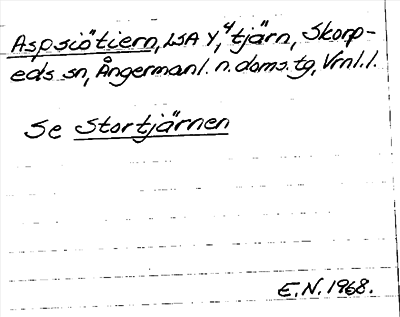 Aspsiötiern, LSA Y, 4 tjärn, Skorp-
eds sn, Ångermanl. n. doms. tg, Vrnl. l.
Se Stortjärnen
E.N. 1968.